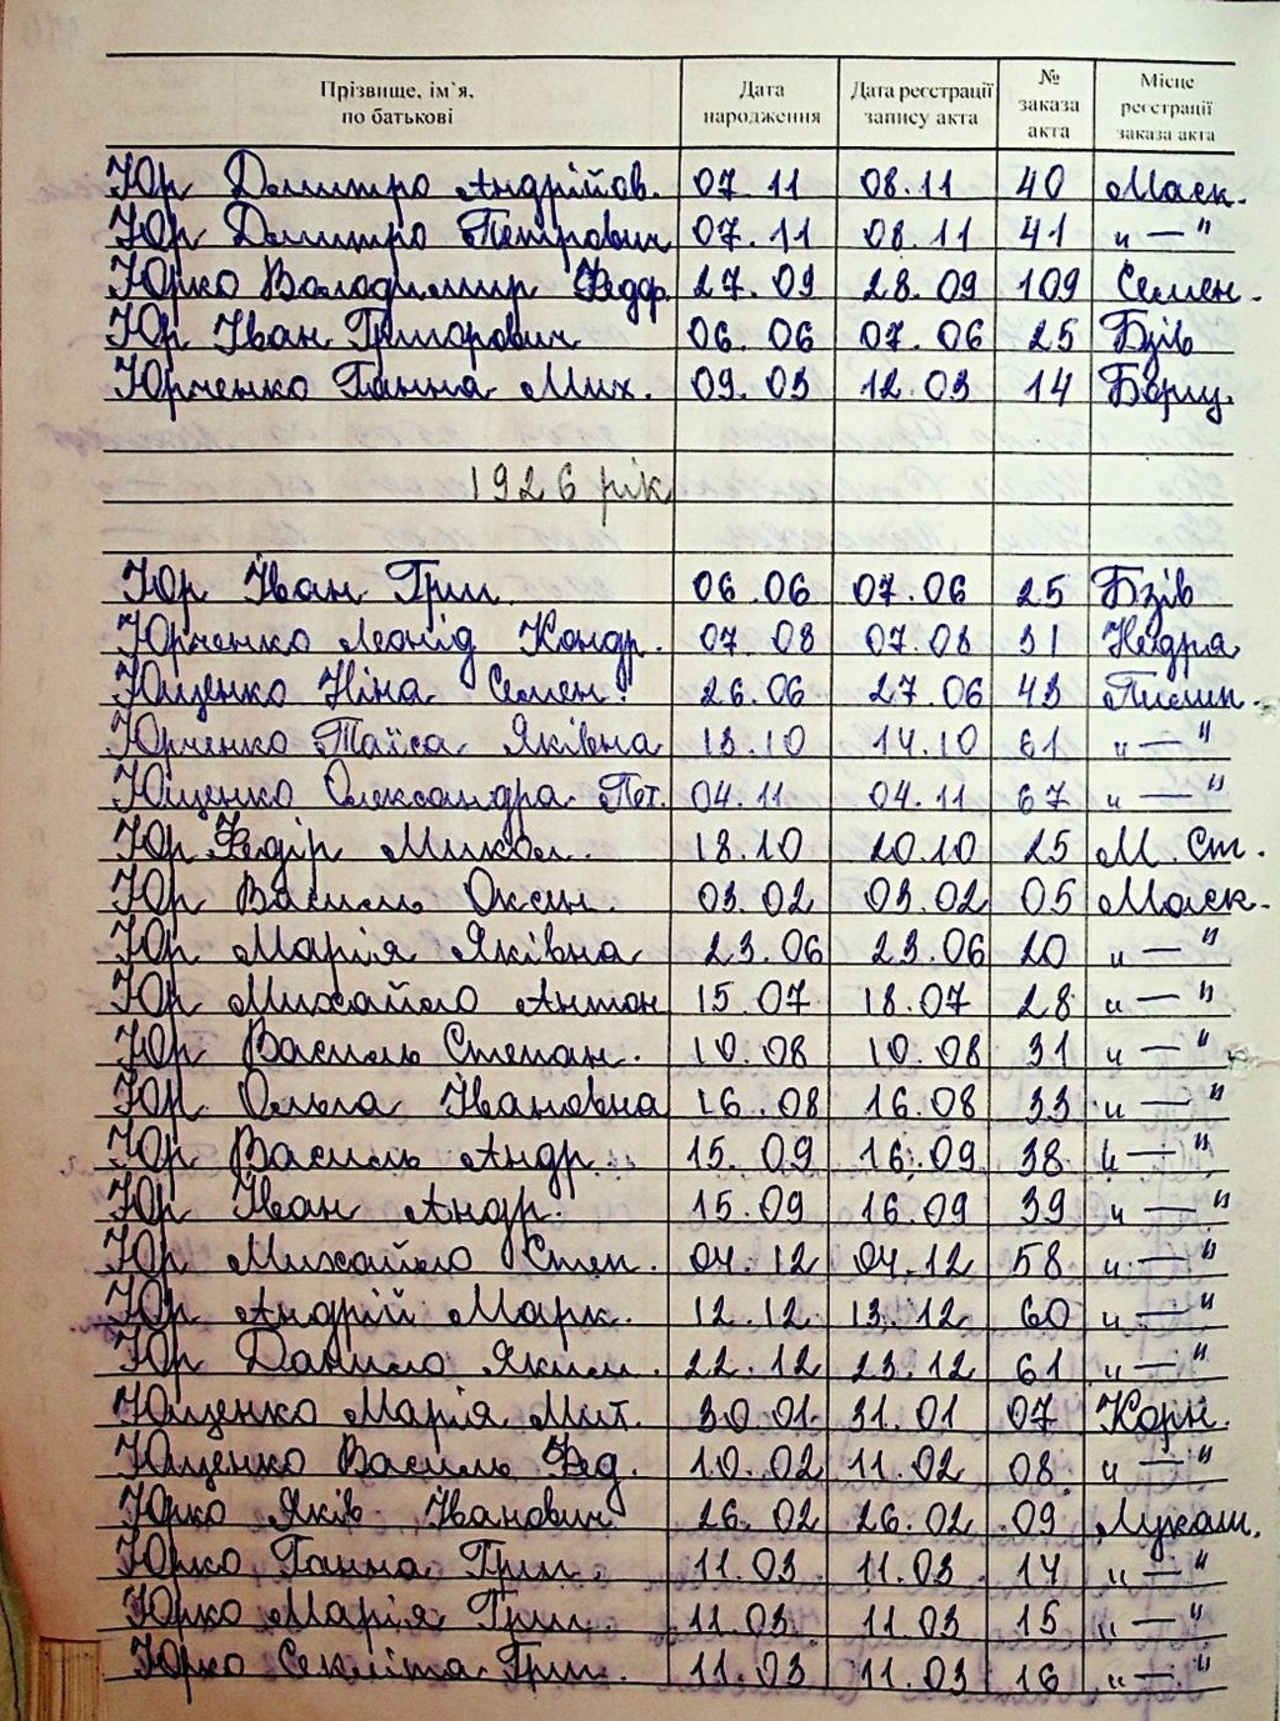 Прізвище, ім'я, по батькові Дата народження Дата реєстрації запису акта № заказа акта Місце реєстрації заказа акта
Юр Дмитро Андрійов. 07.11 08.11 40 Маск.
Юр Дмитро Петрович 07.11 08.11 41 "—"
Юрко Володимир Федор. 27.09 28.09 109 Семен.
Юр Іван Григорович 06.06 07.06 25 Бзів
Юрченко Ганна Мих. 09.03 12.03 14 Борщ.
1926 рік
Юр Іван Григ. 06.06 07.06 25 Бзів
Юрченко Леонід Кондр. 07.08 07.08 31 Недра
Ющенко Ніна Семен. 26.06 27.06 43 Пилип.
Юрченко Таїса Яківна 13.10 14.10 61 "—"
Ющенко Олександра Пет. 04.11 04.11 67 "—"
Юр Федір Микол. 18.10 20.10 25 М. Ст.
Юр Василь Оксен. 03.02 03.02 05 Маск.
Юр Марія Яківна 23.06 23.06 20 "—"
Юр Михайло Антон 15.07 18.07 28 "—"
Юр Василь Степан. 10.08 10.08 31 "—"
Юр Ольга Івановна 16.08 16.08 33 "—"
Юр Василь Андр. 15.09 16.09 38 "—"
Юр Іван Андр. 15.09 16.09 39 "—"
Юр Михайло Степ. 04.12 04.12 58 "—"
Юр Андрій Марк. 12.12 13.12 60 "—"
Юр Данило Яким. 22.12 23.12 61 "—"
Ющенко Марія Мит. 30.01 31.01 07 Корн.
Ющенко Василь Фед. 10.02 11.02 08 "—"
Юрко Яків Іванович 26.02 26.02 09 Лукаш.
Юрко Ганна Григ. 11.03 11.03 14 "—"
Юрко Марія Григ. 11.03 11.03 15 "—"
Юрко Секліта Григ. 11.03 11.03 16 "—"